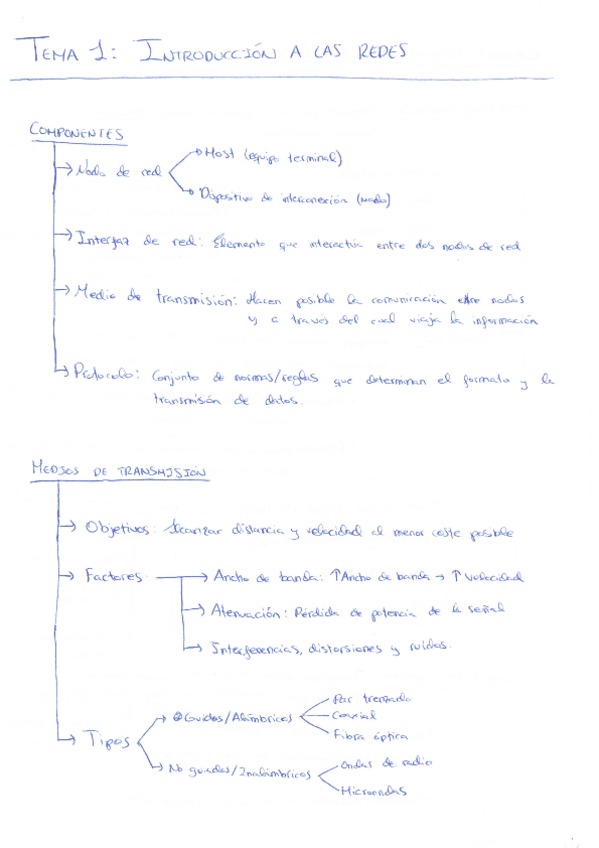 TEMA 1: INTRODUCCIÓN A LAS REDES
COMPONENTES
→ Nodo de red
→ Host (equipo terminal)
→ Dispositivo de interconexión (nodo)
→ Interfaz de red: Elemento que interactúa entre dos nodos de red
→ Medio de transmisión: Hacen posible la comunicación entre nodos
y a través del cual viaja la información
→ Protocolo: Conjunto de normas/reglas que determinan el formato y la
transmisión de datos.
MEDIOS DE TRANSMISIÓN
→ Objetivos: Alcanzar distancia y velocidad al menor coste posible
→ Factores
→ Ancho de banda: ↑Ancho de banda → ↑ Velocidad
→ Atenuación: Pérdida de potencia de la señal
→ Interferencias, distorsiones y ruidos.
→ Tipos
→ Guiados/Alámbricos
Par trenzado
Coaxial
Fibra óptica
→ No guiados/Inalámbricos
Ondas de radio
Microondas